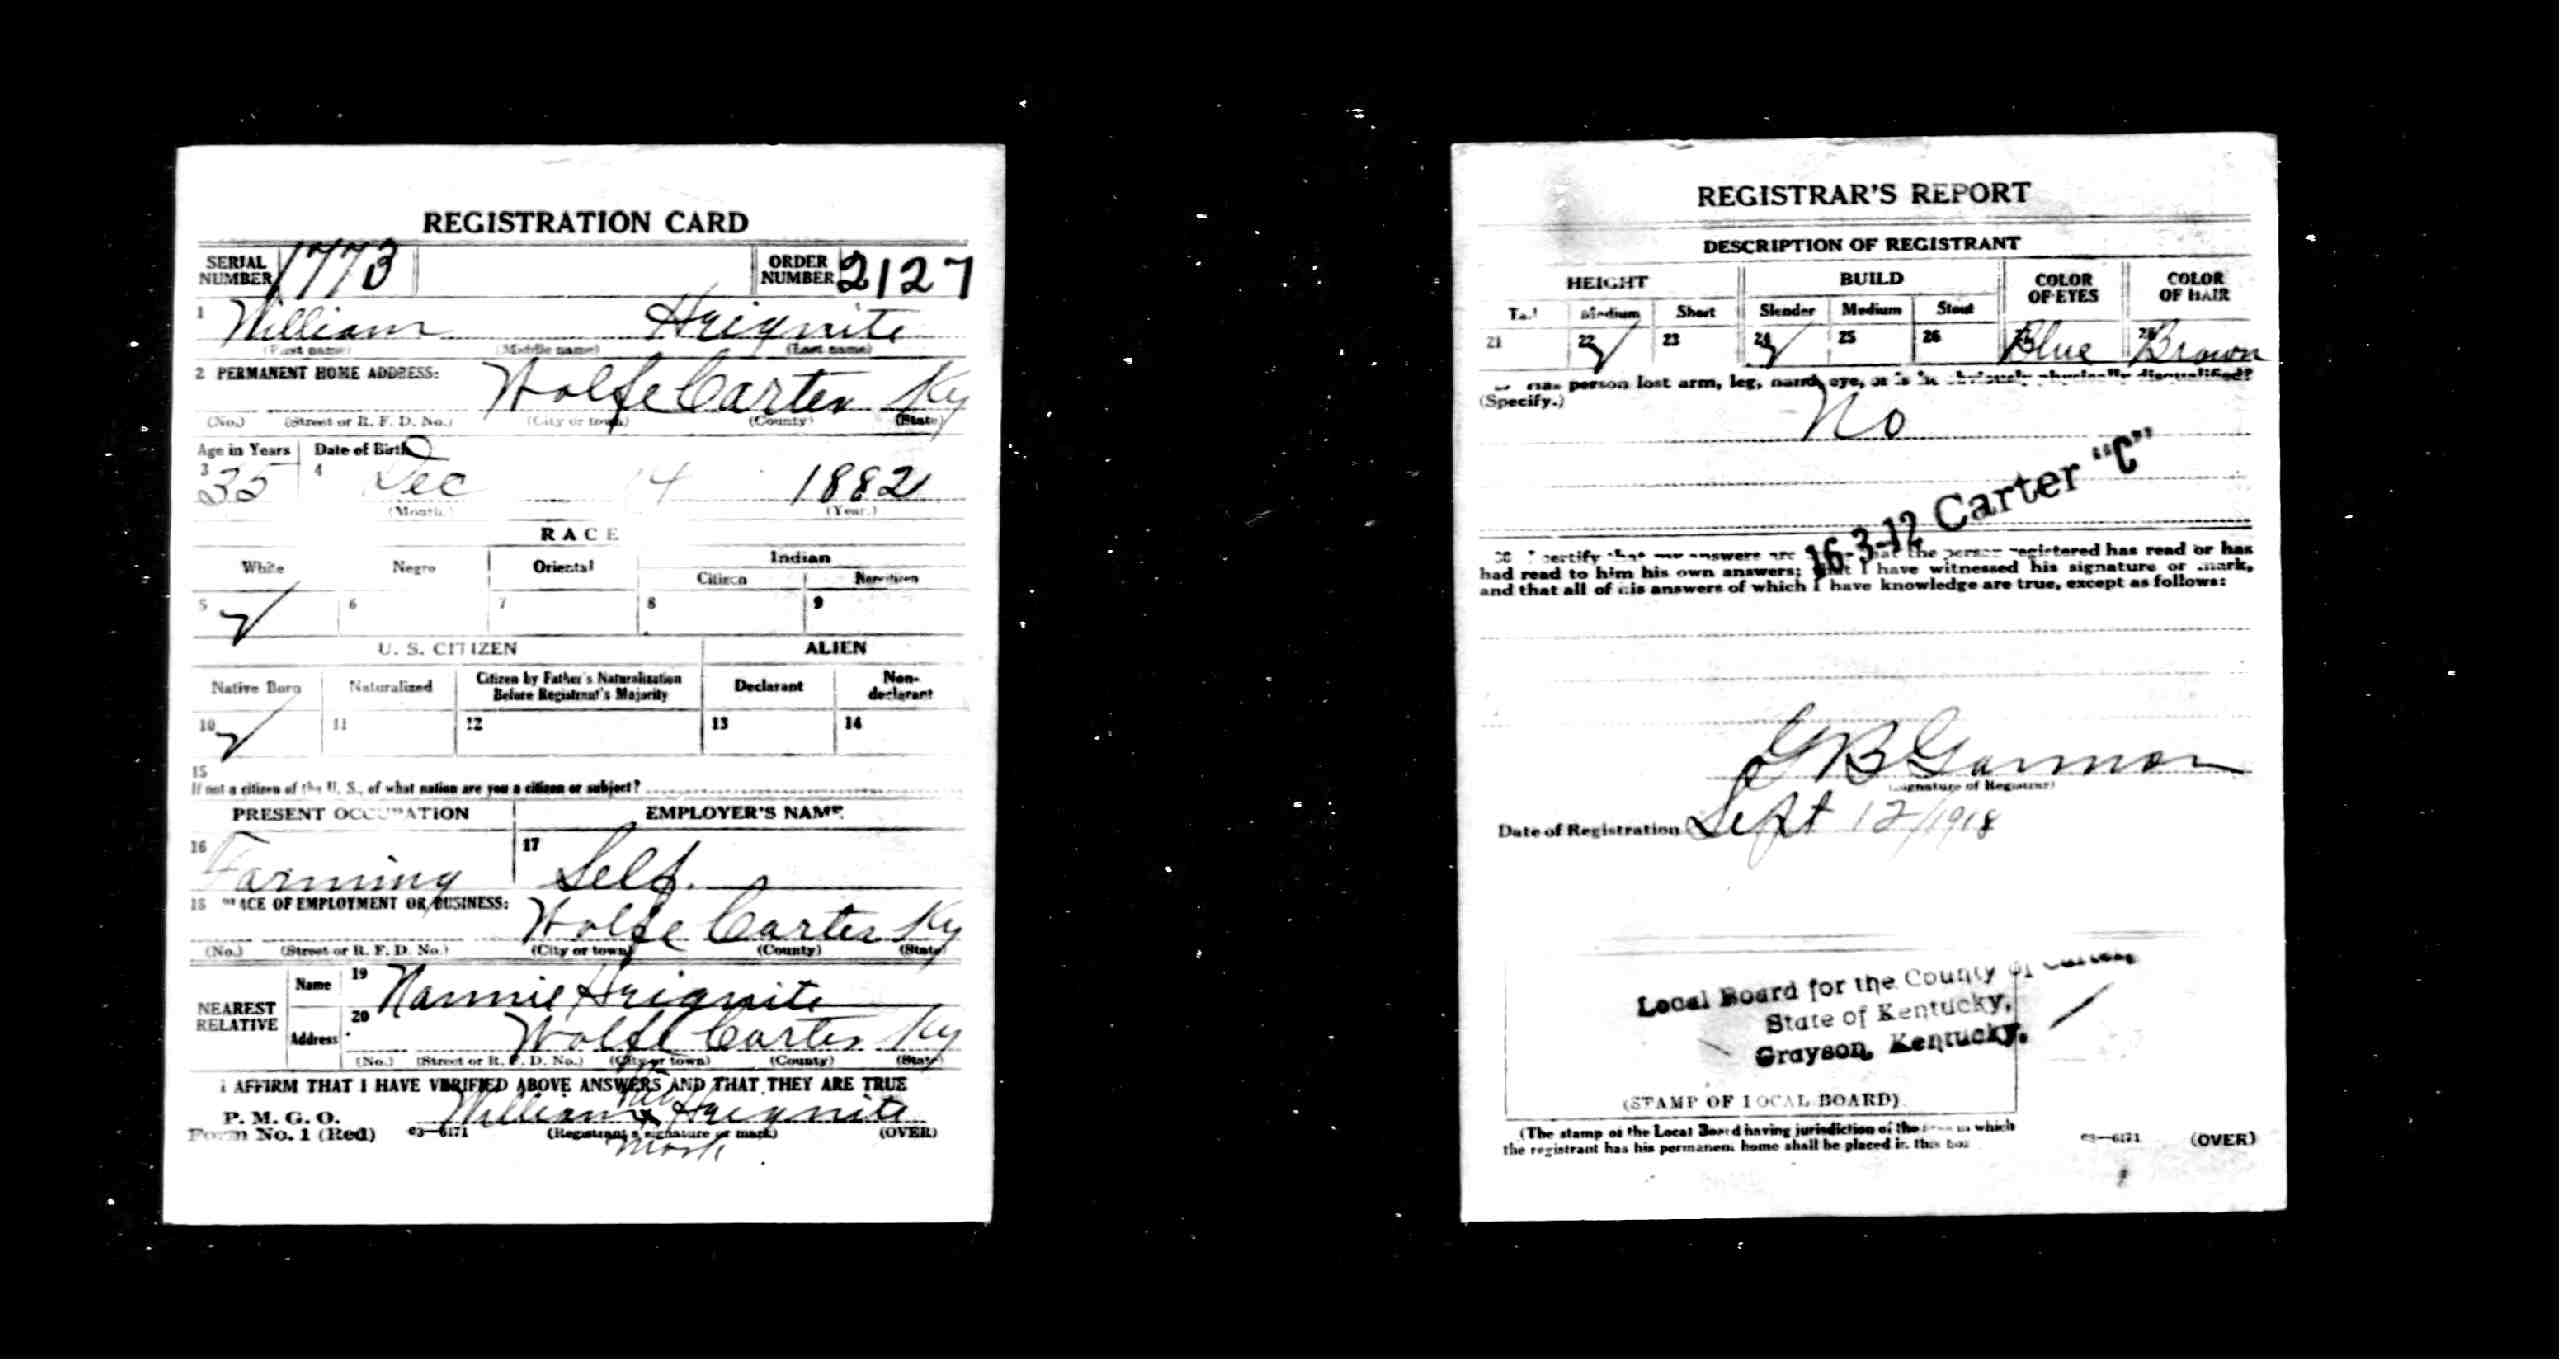 REGISTRATION CARD
SERIAL NUMBER 1773 ORDER NUMBER 2127
1 William Heignite
(First name) (Middle name) (Last name)
2 PERMANENT HOME ADDRESS: Wolfe Carter Ky
(No.) (Street or R. F. D. No.) (City or town) (County) (State)
Age in Years Date of Birth
3 35 4 Dec 14 1882
(Month.) (Year.)
RACE
White Negro Oriental Indian
Citizen Noncitizen
5 ✓ 6 7 8 9
U. S. CITIZEN ALIEN
Native Born Naturalized Citizen by Father's Naturalization Before Registrant's Majority Declarant Non-declarant
10 ✓ 11 12 13 14
15
If not a citizen of the U. S., of what nation are you a citizen or subject?
PRESENT OCCUPATION EMPLOYER'S NAME
16 Farming 17 Self.
18 PLACE OF EMPLOYMENT OR BUSINESS: Wolfe Carter Ky
(No.) (Street or R. F. D. No.) (City or town) (County) (State)
NEAREST RELATIVE Name 19 Nannie Heignite
Address 20 Wolfe Carter Ky
(No.) (Street or R. F. D. No.) (City or town) (County) (State)
I AFFIRM THAT I HAVE VERIFIED ABOVE ANSWERS AND THAT THEY ARE TRUE
His
P. M. G. O. William x Heignite
Form No. 1 (Red) 03—6171 (Registrant's signature or mark) (OVER)
mark
REGISTRAR'S REPORT
DESCRIPTION OF REGISTRANT
HEIGHT BUILD COLOR OF EYES COLOR OF HAIR
Tall Medium Short Slender Medium Stout
21 22 ✓ 23 24 ✓ 25 26 Blue 28 Brown
Has person lost arm, leg, hand, eye, or is he obviously physically disqualified?
(Specify.)
No
16-3-12 Carter "C"
30 I certify that my answers are that the person registered has read or has
had read to him his own answers; that I have witnessed his signature or mark,
and that all of his answers of which I have knowledge are true, except as follows:
G B Garmon
(Signature of Registrar)
Date of Registration Sept 12/1918
Local Board for the County of Carter,
State of Kentucky,
Grayson, Kentucky.
(STAMP OF LOCAL BOARD)
(The stamp of the Local Board having jurisdiction of the area in which
the registrant has his permanent home shall be placed in this box
03—6171 (OVER)